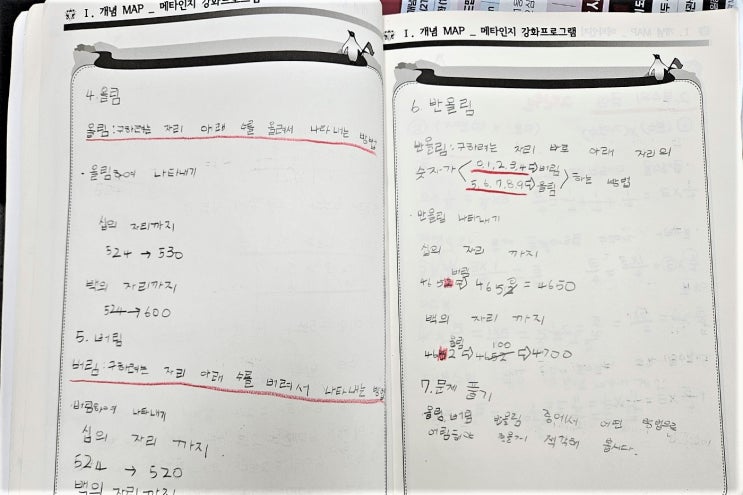 I. 개념 MAP _ 메타인지 강화프로그램
4. 올림
올림 : 구하려는 자리 아래 수를 올려서 나타내는 방법
· 올림하여 나타내기
십의 자리까지
524 → 530
백의 자리까지
524 → 600
5. 버림
버림 : 구하려는 자리 아래 수를 버려서 나타내는 방법
· 버림하여 나타내기
십의 자리 까지
524 → 520
백의 자리까지
I. 개념 MAP _ 메타인지 강화프로그램
6. 반올림
반올림 : 구하려는 자리 바로 아래 자리의
숫자가 0,1,2,3,4 ⇨ 버림
5,6,7,8,9 ⇨ 올림 하는 방법
· 반올림 나타내기
십의 자리 까지
버림
4652 ⇨ 4652 = 4650
백의 자리 까지
올림 100
4652 ⇨ 4652 ⇨ 4700
7. 문제 풀기
올림, 버림 반올림 중에서 어떤 방법으로
어림할지 생각해 봅니다.